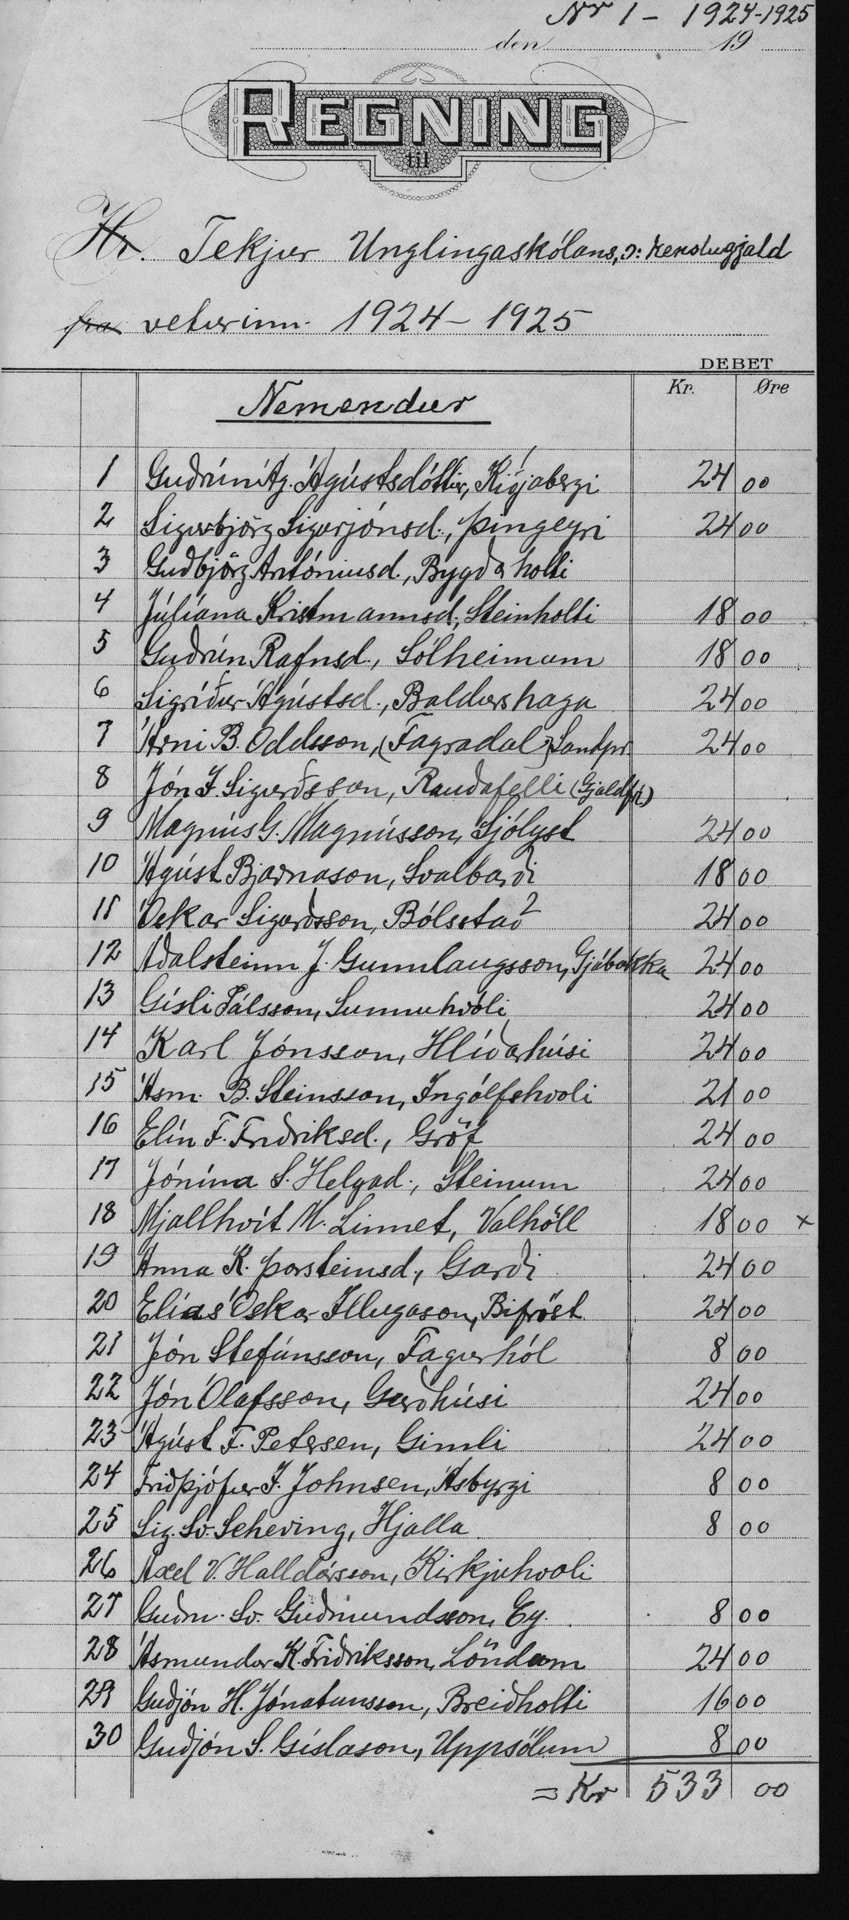 Nr 1 - 1924-1925
den 19
REGNING
til
Hr. Tekjur Unglingaskólans, ɔ: kenslugjald
fra veturinn 1924 - 1925
DEBET
Nemendur Kr. Øre
1 Guðrún Ág. Ágústsdóttir, Kiðjabergi 24 00
2 Sigurbjörg Sigurjónsd., Þingeyri 24 00
3 Guðbjörg Antóníusd., Bygðaholti
4 Júlíana Kristmannsd., Steinholti 18 00
5 Guðrún Rafnsd., Sólheimum 18 00
6 Sigríður Ágústsd., Baldurshaga 24 00
7 Árni B. Oddsson, (Fagradal) Landpr. 24 00
8 Jón Í. Sigurðsson, Rauðafelli (Gjaldfrí)
9 Magnús G. Magnússon, Sjólyst 24 00
10 Ágúst Bjarnason, Svalbarði 18 00
11 Óskar Sigurðsson, Bólstað 2 24 00
12 Aðalsteinn J. Gunnlaugsson, Gjábakka 24 00
13 Gísli Pálsson, Sunnuhvóli 24 00
14 Karl Jónsson, Hlíðarhúsi 24 00
15 Ásm. B. Steinsson, Ingólfshvoli 21 00
16 Elín F. Friðriksd., Gröf 24 00
17 Jónína S. Helgad., Steinum 24 00
18 Mjallhvít M. Linnet, Valhöll 18 00 x
19 Anna K. Þorsteinsd., Garði 24 00
20 Elías Óskar Illugason, Bifröst 24 00
21 Jón Stefánsson, Fagurhól 8 00
22 Jón Ólafsson, Gerðhúsi 24 00
23 Ágúst F. Petersen, Gimli 24 00
24 Friðþjófur Í. Johnsen, Ásbyrgi 8 00
25 Sig. Sv. Scheving, Hjalla 8 00
26 Axel V. Halldórsson, Kirkjuhvoli
27 Guðm. Sv. Guðmundsson, Ey. 8 00
28 Ásmundur K. Friðriksson, Löndum 24 00
29 Guðjón H. Jónatansson, Breiðholti 16 00
30 Guðjón S. Gíslason, Uppsölum 8 00
= Kr 533 00